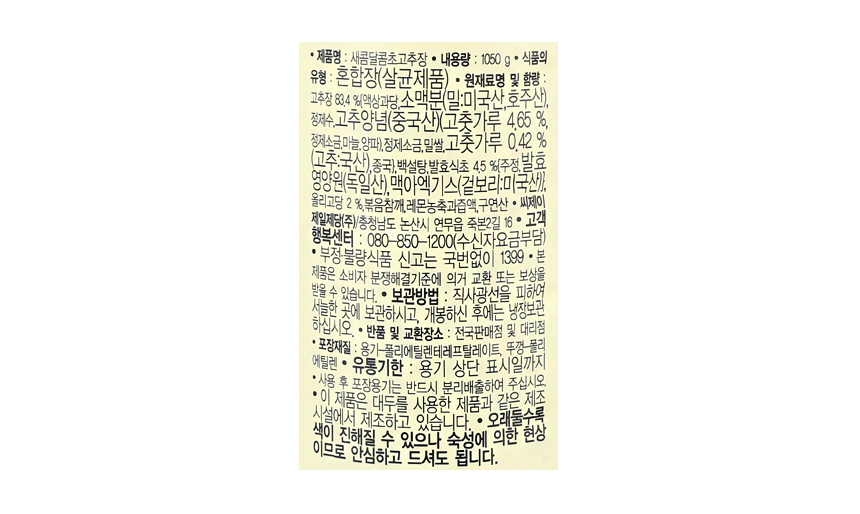 • 제품명 : 새콤달콤초고추장 • 내용량 : 1050 g • 식품의
유형 : 혼합장(살균제품) • 원재료명 및 함량 :
고추장 83.4 %{액상과당,소맥분(밀:미국산,호주산),
정제수,고추양념(중국산)(고춧가루 4.65 %,
정제소금,마늘,양파),정제소금,밀쌀,고춧가루 0.42 %
(고추:국산),종국},백설탕,발효식초 4.5 %{주정,발효
영양원(독일산),맥아엑기스(겉보리:미국산)},
올리고당 2 %,볶음참깨,레몬농축과즙액,구연산 • 씨제이
제일제당(주)/충청남도 논산시 연무읍 죽본2길 16 • 고객
행복센터 : 080-850-1200(수신자요금부담)
• 부정·불량식품 신고는 국번없이 1399 • 본
제품은 소비자 분쟁해결기준에 의거 교환 또는 보상을
받을 수 있습니다. • 보관방법 : 직사광선을 피하여
서늘한 곳에 보관하시고, 개봉하신 후에는 냉장보관
하십시오. • 반품 및 교환장소 : 전국판매점 및 대리점
• 포장재질 : 용기-폴리에틸렌테레프탈레이트, 뚜껑-폴리
에틸렌 • 유통기한 : 용기 상단 표시일까지
• 사용 후 포장용기는 반드시 분리배출하여 주십시오.
• 이 제품은 대두를 사용한 제품과 같은 제조
시설에서 제조하고 있습니다. • 오래둘수록
색이 진해질 수 있으나 숙성에 의한 현상
이므로 안심하고 드셔도 됩니다.